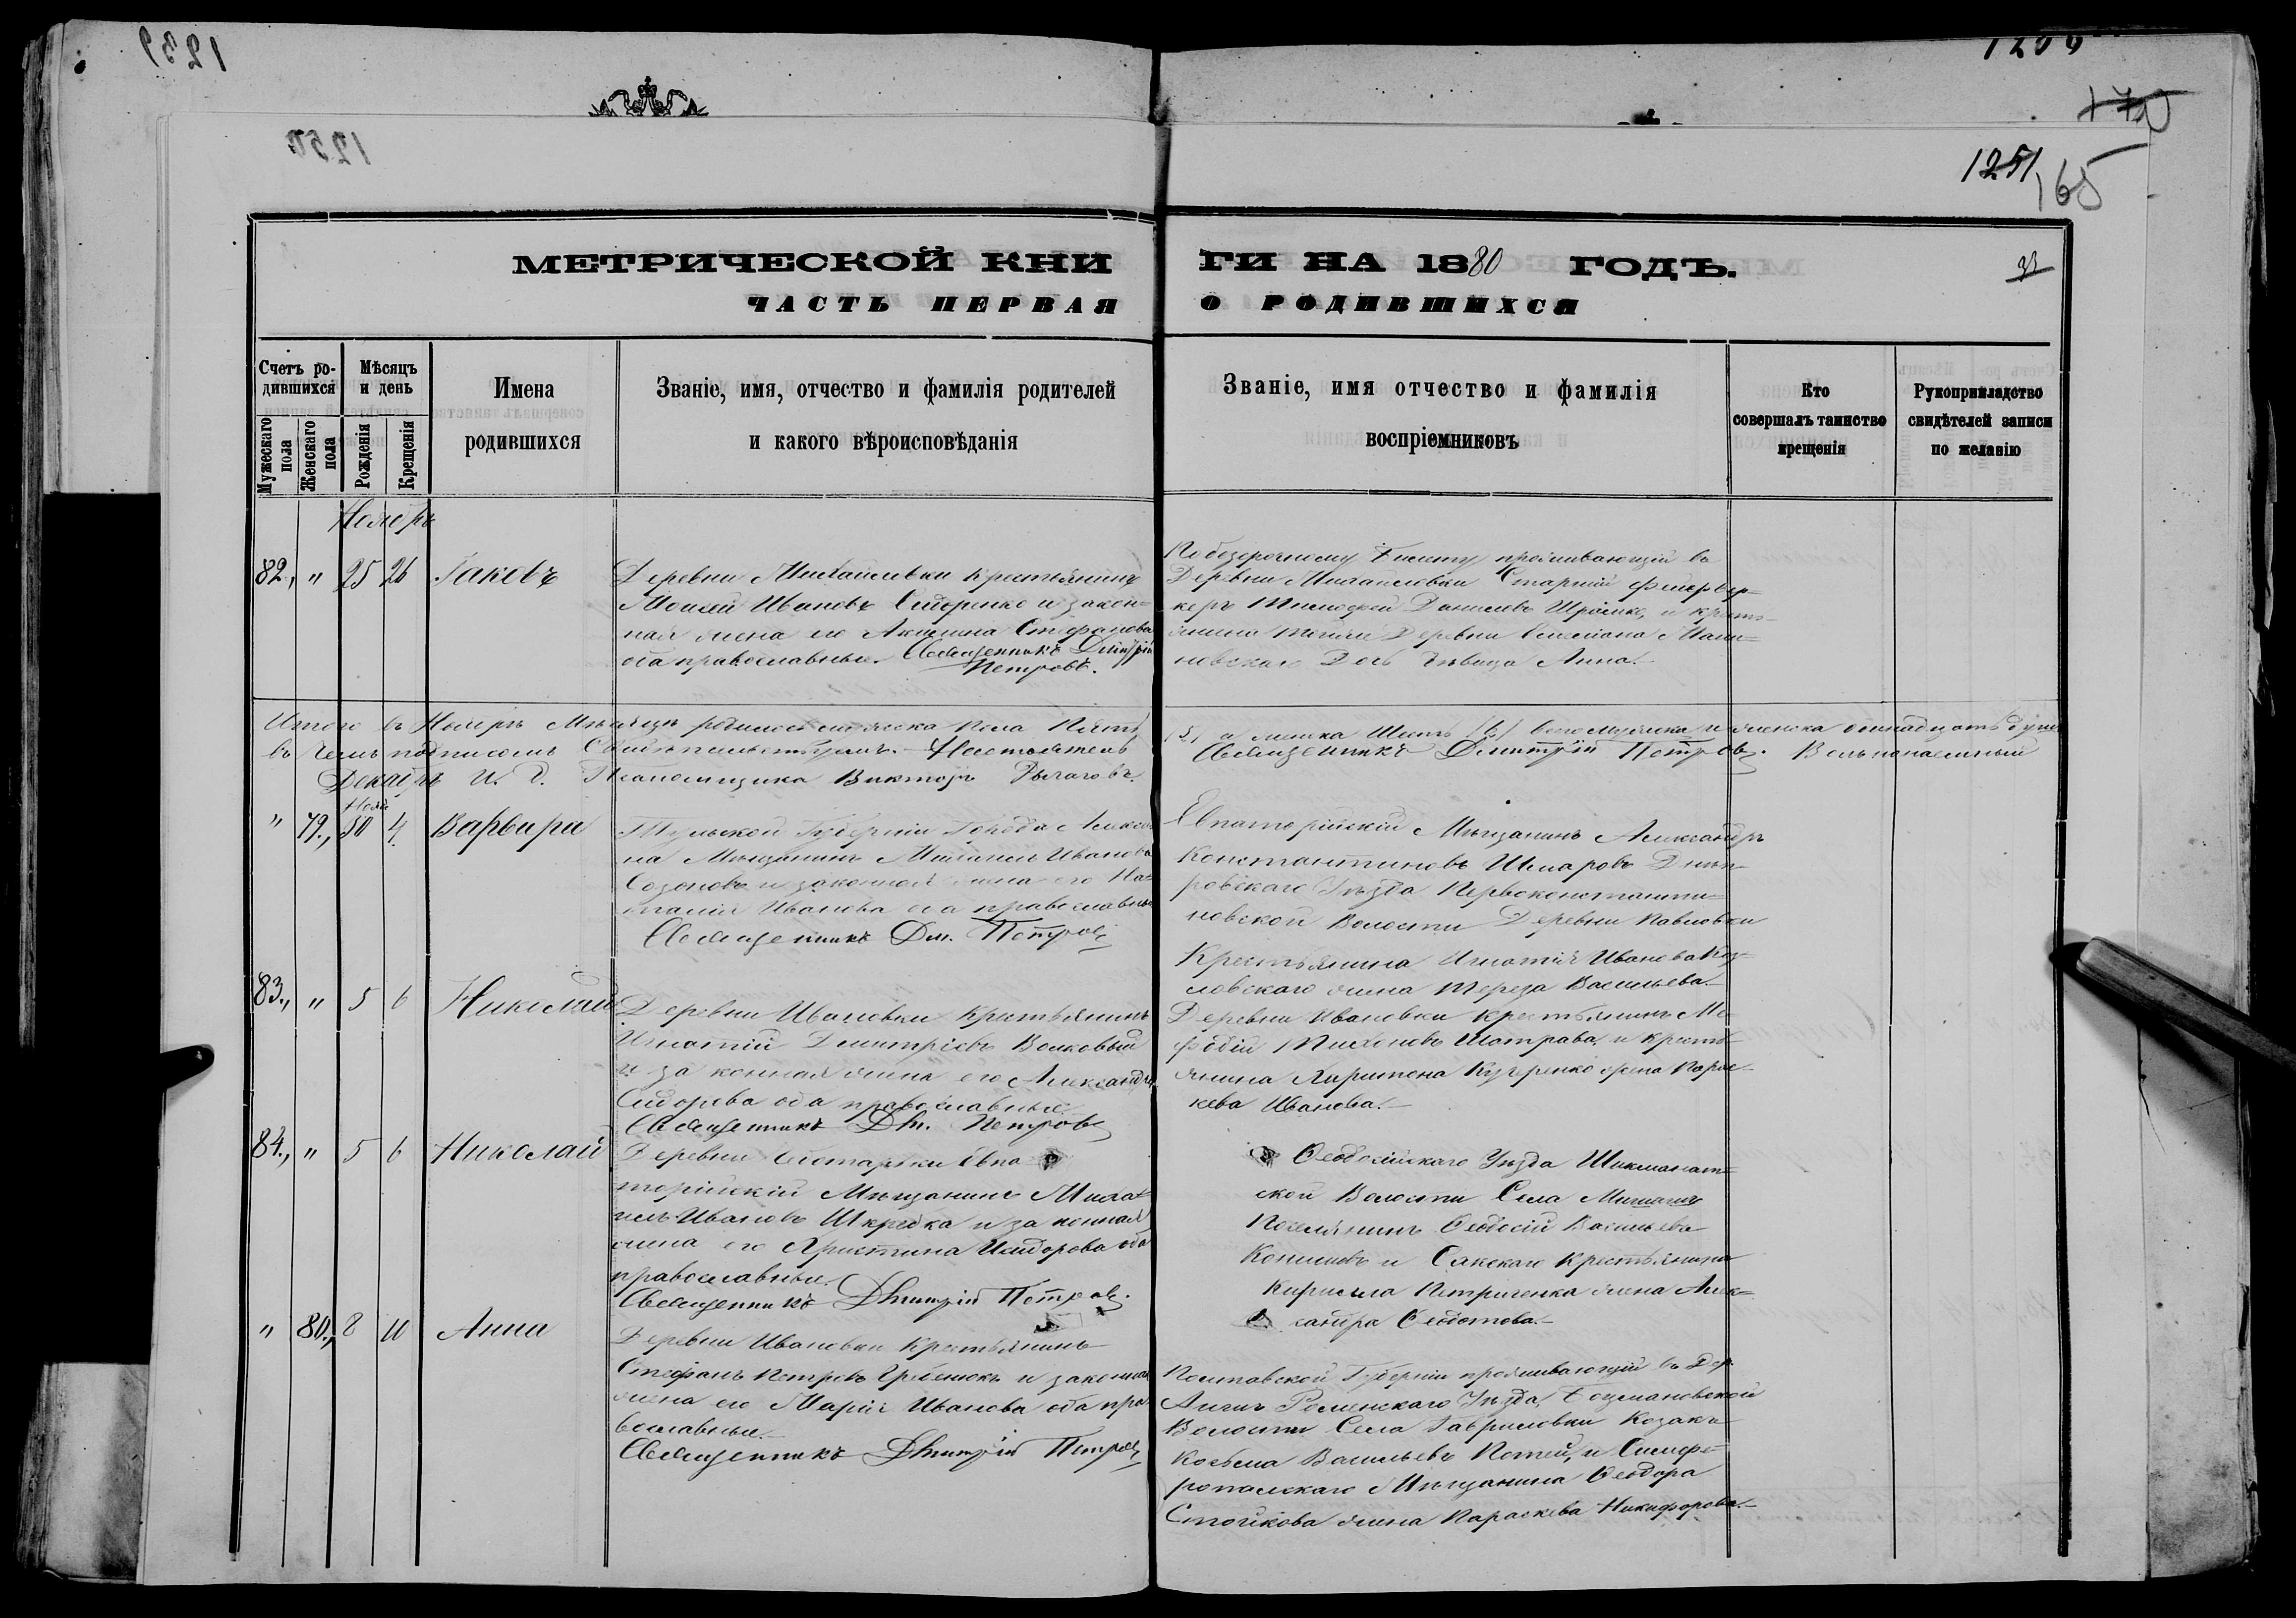 1239
1250
1251
165
170
МЕТРИЧЕСКОЙ КНИ ГИ НА 1880 ГОДЪ.
ЧАСТЬ ПЕРВАЯ О РОДИВШИХСЯ
Счетъ ро-
дившихся
Мужескаго пола
Женскаго пола
Мѣсяцъ
и день
Рожденія
Крещенія
Имена
родившихся
Званіе, имя, отчество и фамилія родителей
и какого вѣроисповѣданія
Званіе, имя отчество и фамилія
воспріемниковъ
Кто
совершалъ таинство
крещенія
Рукоприкладство
свидѣтелей записи
по желанію
Ноябрь
82., " 25 26 Іаковъ
Деревни Михайловки Крестьянинъ
Моисей Ивановъ Сидоренко и закон=
ная жена его Акилина Стефанова
оба православные. Священникъ Димитрій
Петровъ.
По безсрочному билету проживающій въ
Деревни Михайловки Старшій Фейервер=
керъ Тимофей Даниловъ и кресть=
янина тойже Деревни Мали=
новскаго Дочь Дѣвица Анна.
Итого въ Ноябрѣ Мѣсяцѣ родилось мужеска пола Пять
(5) и женска Шесть (6) всего мужска и женска одинадцать душъ
въ чемъ подписомъ Свидѣтельствуемъ. Настоятель
Священникъ Димитрій Петровъ. Вольнонаемный
Декабрь И. д. Псаломщика Викторъ Рычаговъ.
" 79., Нояб. 30 4 Варвара
Тульской Губерніи Города Алекси
на Мѣщанинъ Михаилъ Ивановъ
Созоновъ и законная жена его На
талія Иванова оба православные
Священникъ Дм. Петровъ
Евпаторійскій Мѣщанинъ Александръ
Константиновъ Днѣп=
ровскаго Уѣзда Первоконстанти=
новской Волости Деревни Павловки
Крестьянина Игнатія Иванова Коз=
ловскаго жена Тереза Васильева.
83., " 5 6 Николай
Деревни Ивановки Крестьянинъ
Игнатій Димитріевъ Волковый
и законная жена его Александра
Сидорова оба православные
Священникъ Дм. Петровъ
Деревни Ивановки крестьянинъ Ме
фодій Тихоновъ Шатрава и кресть=
янина Харитона Кучеренко жена Парас=
кева Иванова.
84., " 5 6 Николай
Деревни Евпа
торійскій Мѣщанинъ Миха
илъ Ивановъ Шкредка и законная
жена его Христина Исидорова оба
православные.
Священникъ Димитрій Петровъ.
Ѳеодосійскаго Уѣзда
ской Волости Села
Поселянинъ Ѳеодосій Васильева
и Сакскаго Крестьянина
Кирилла Петриченка жена Алек=
сандра Ѳеодотова.
" 80., 8 10 Анна
Деревни Ивановки Крестьянинъ
Стефанъ Петровъ Гребенюкъ и законная
жена его Марія Иванова оба пра
вославные.
Священникъ Димитрій Петровъ
Полтавской Губерніи проживающій въ Дер.
Роменскаго Уѣзда,
Волости Села Гавриловки Козакъ
Косьма Васильевъ и Симфе=
ропольскаго Мѣщанина Ѳеодора
Стойкова жена Параскева Никифорова.